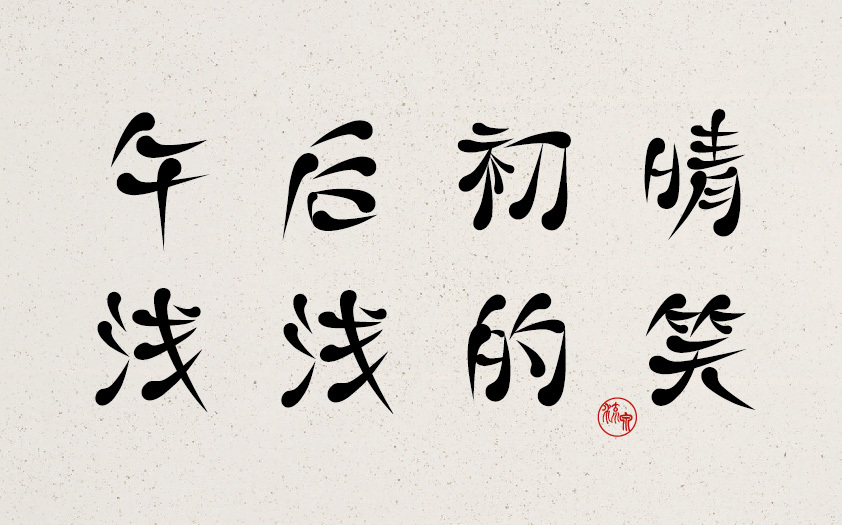 午后初晴
浅浅的笑